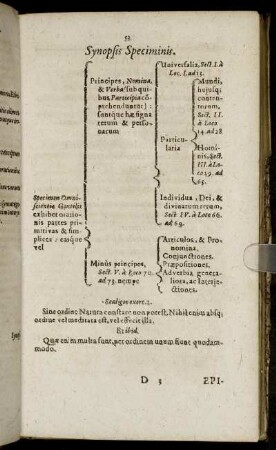 58.
Synopsis Speciminis.
Specimen Omni-
exhibet oratio-
nis partes pri-
mitivas & sim-
plices: easque
vel
Principes, Nomina,
& Verba (sub quibus
Participia cō-
prehenduntur)
rerum & perso-
narum
Universalia, Sect. I. à
Loc. 1. ad 13.
Particu-
laria
Mundi,
hujusq;
conten-
torum,
Sect. II.
à Loco
14. ad 28
Homi-
nis, Sect.
III. à Lo-
co 29. ad
65.
Individua, Dei, &
divinarum rerum,
Sect. IV. à Loco 66.
ad 69.
Minùs principes,
Sect. V. à Loco 70.
ad 73. nempe
Articulus, & Pro-
nomina.
Conjunctiones.
Præpositiones.
Adverbia genera-
liora, ac Interje-
ctiones.
Scaliger exerc. 2.
Sine ordine Natura constare non potest. Nihil enim absq;
ordine vel meditata est, vel effecit illa.
Et ibid.
Quæ enim multa sunt, per ordinem unum fiunt quodam-
modo.
D 3 EPI-